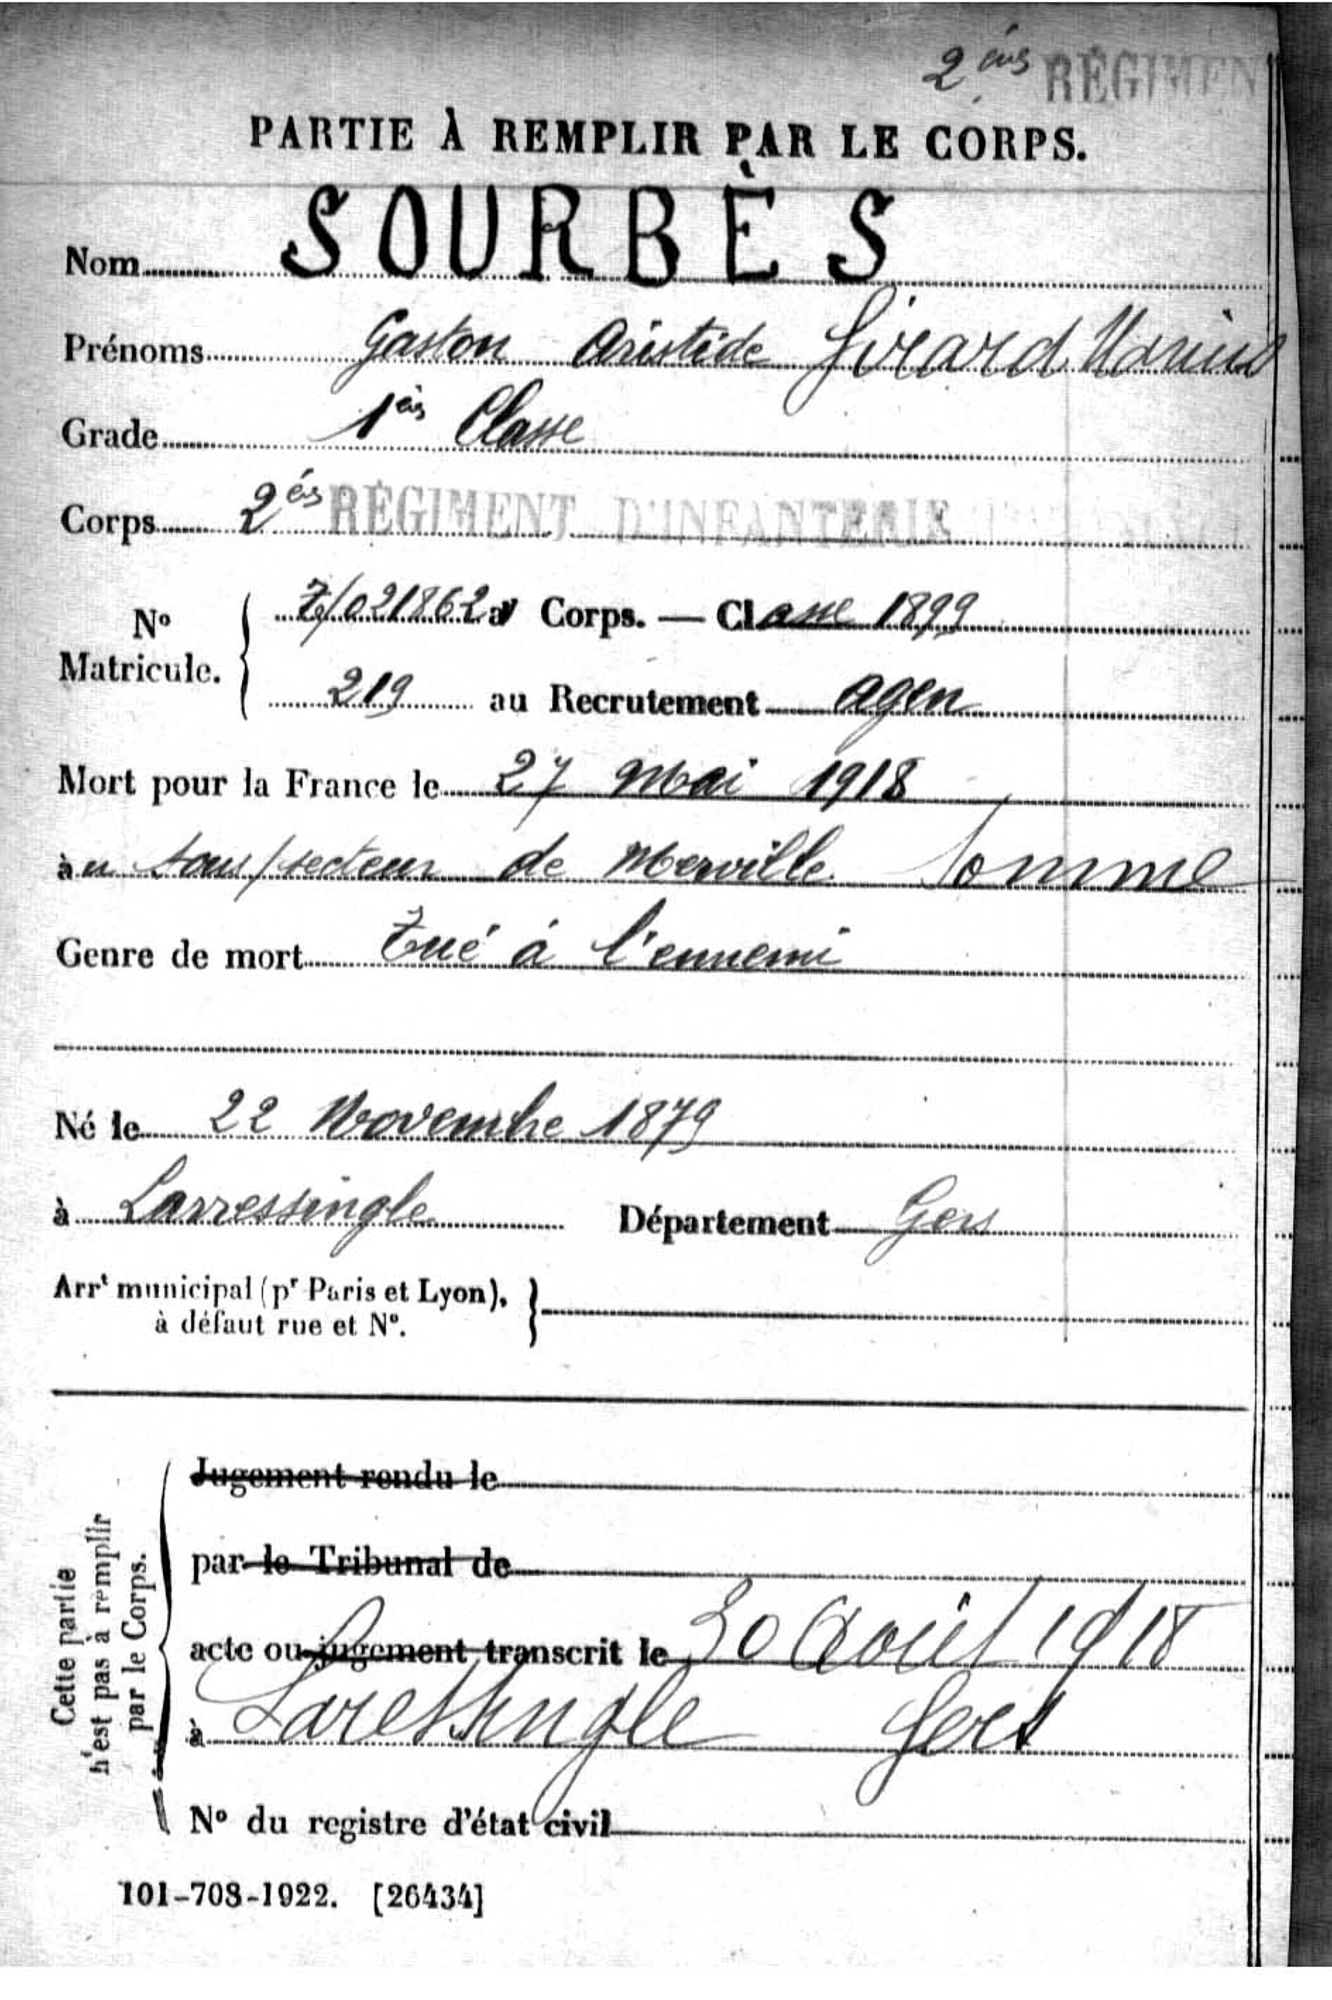 2ème RÉGIMEN
PARTIE À REMPLIR PAR LE CORPS.
Nom SOURBÈS
Prénoms Gaston Aristide Girard Marius
Grade 1ère Classe
Corps 2ème RÉGIMENT D'INFANTERIE
N° Matricule. { 7/021862 au Corps. — Classe 1899
219 au Recrutement Agen
Mort pour la France le 27 Mai 1918
àu sous/secteur de Merville Somme
Genre de mort Tué à l'ennemi
Né le 22 Novembre 1879
à Larressingle Département Gers
Arrt municipal (pr Paris et Lyon), }
à défaut rue et N°.
Cette partie
n'est pas à remplir
par le Corps.
Jugement rendu le
par le Tribunal de
acte ou jugement transcrit le 30 Août 1918
à Laressingle Gers
N° du registre d'état civil
101-708-1922. [26434]